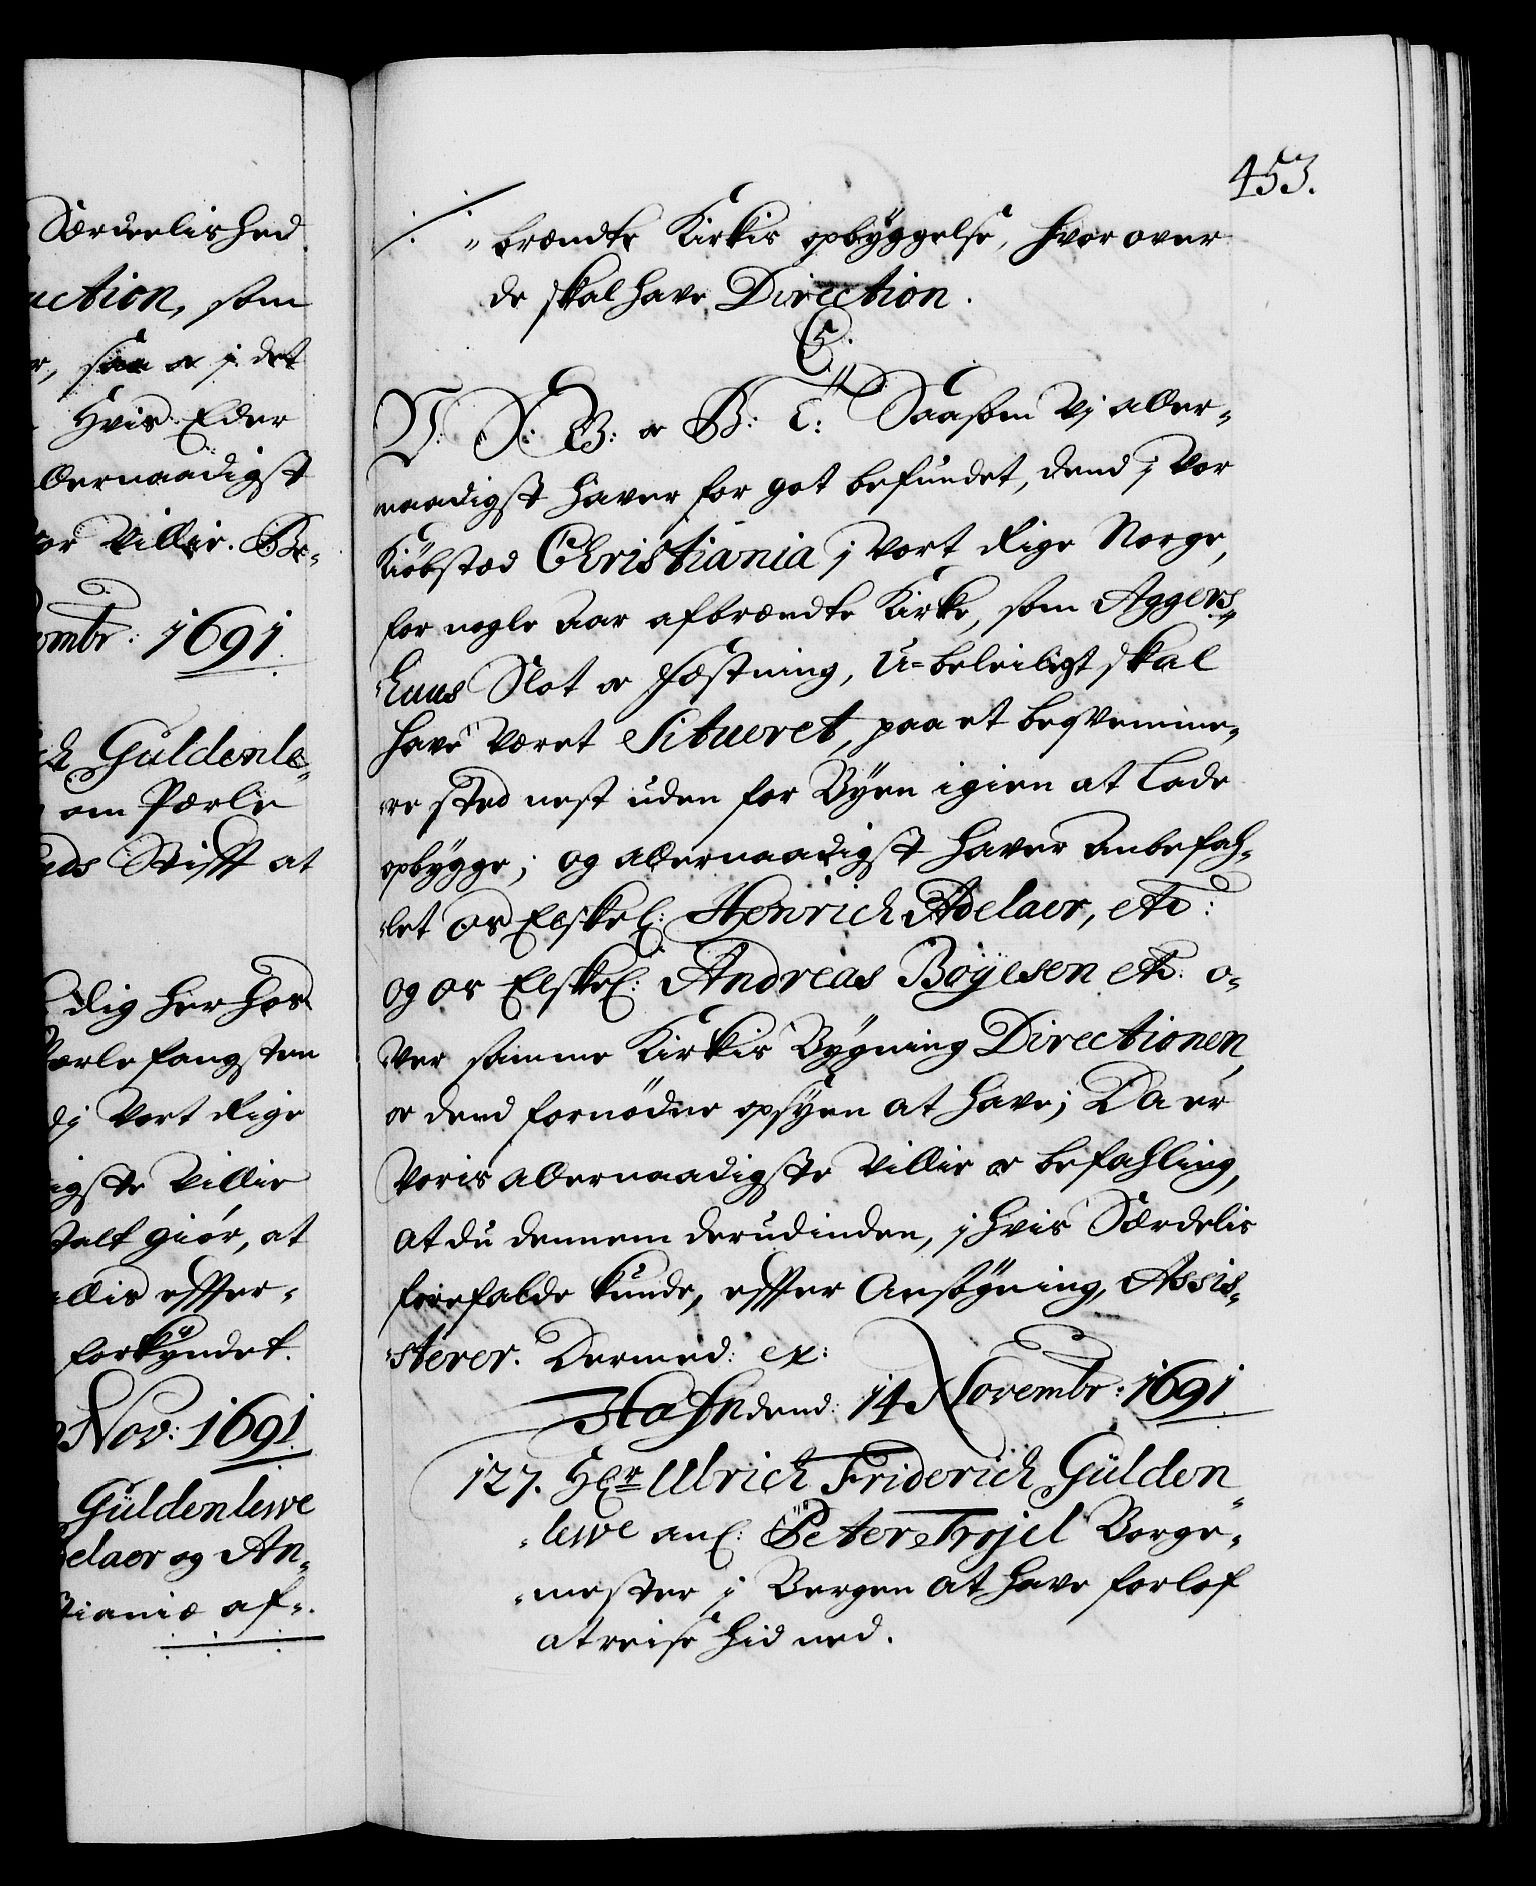 Særdeelished
uction, som
r, saa oc j det
Hvis Eder
llernaadigst
vor Villie. Be-
ombr: 1691.
ich Guldenle-
om Pærle
uds Stifft at
dig her hos
Pærle fangsten
dj Vort Rige
igste Villie
stalt giör, at
allis effter-
forkyndet.
Nov: 1691.
Güldenlewe
elaer og An-
stianiæ af-
453.
brændte Kirkis opbyggelse, hvor over
de skal have Direction.
C. 5.
V: S: G: oc B: T: Saasom Vj aller-
naadigst haver for got befundet, dend j Vor
Kiöbstad Christiania j Vort Rige Norge,
for nogle Aar afbrændte Kirke, som Aggers-
huus Slot oc Fæstning, U-beleiligt skal
have Været Situeret, paa et beqvemme-
re sted nest uden for Byen igien at lade
opbygge; og allernaadigst haver Anbefah-
let Os Elskel: Henrich Adelaer, etc:
og os Elskel: Andreas Böyesen etc: o-
ver samme Kirkis Bygning Directionen,
oc dend fornödne opsyen at have; Da er
Voris allernaadigste Villie oc befahling,
At du dennem derudinden, j hvis Særdelis
forefalde kunde, effter Ansögning, Assis-
sterer. Dermed: ex:
Hafn dend: 14 Novembr: 1691.
127. Hr Ulrich Friderich Gülden-
lewe anl: Peter Trojel Borge-
mester j Bergen At have forlof
at reise hid ned.